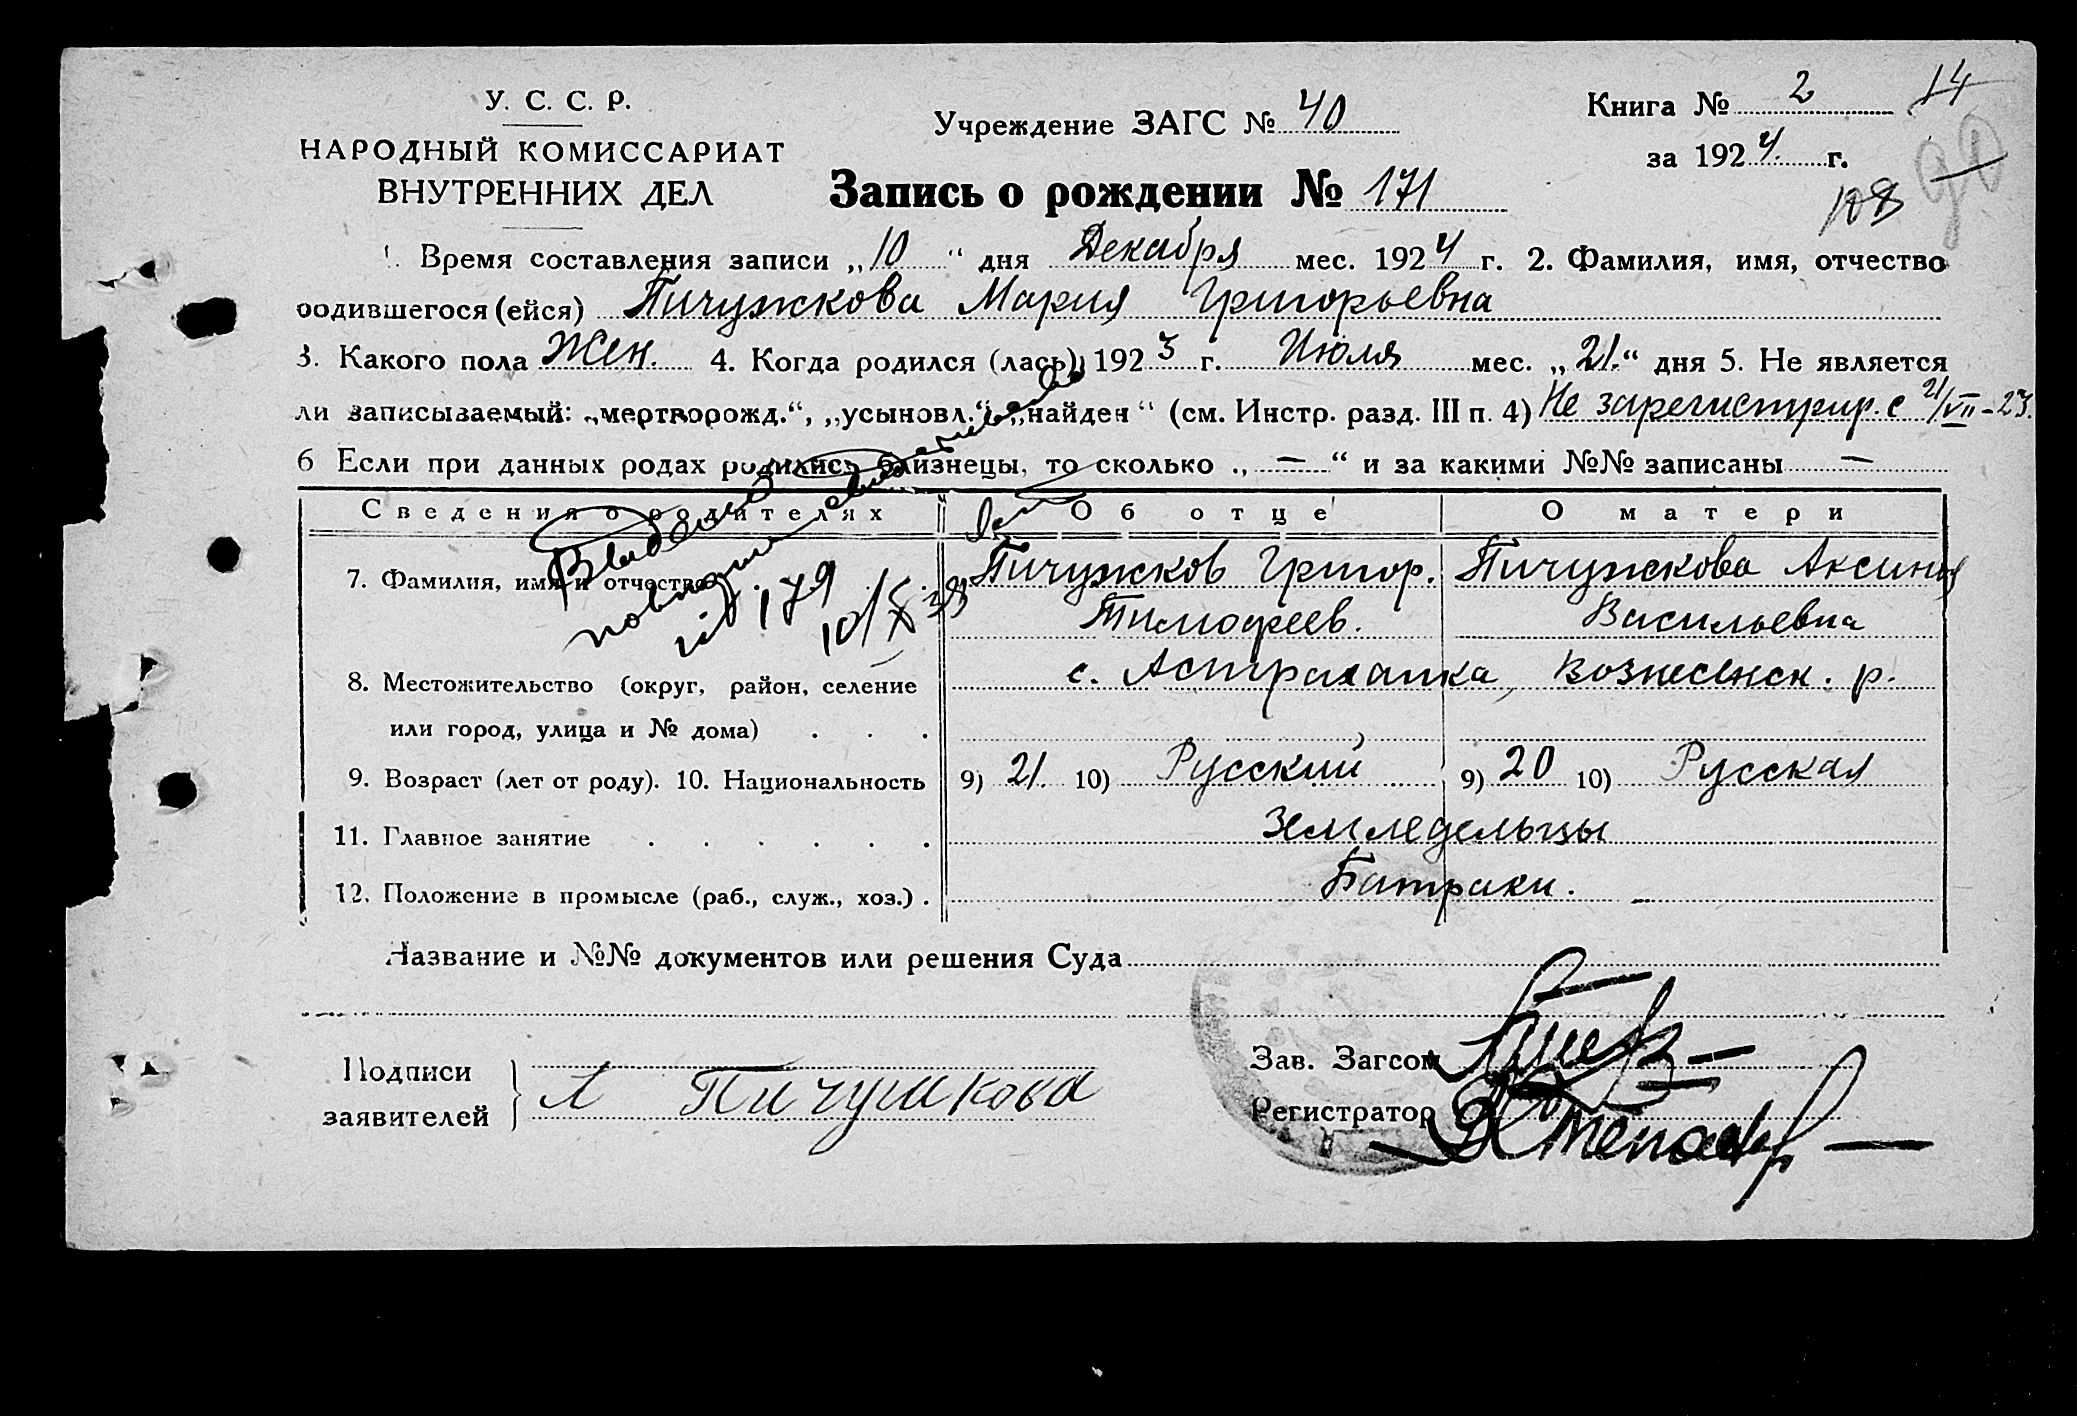 У. С. С. Р.
НАРОДНЫЙ КОМИССАРИАТ
ВНУТРЕННИХ ДЕЛ
Учреждение ЗАГС № 40
Книга № 2 14
за 1924 г.
90
128
Запись о рождении № 171
1. Время составления записи „10“ дня Декабря мес. 1924 г. 2. Фамилия, имя, отчество
родившегося (ейся) Пичужкова Мария Григорьевна
3. Какого пола Жен. 4. Когда родился (лась) 1923 г. Июля мес. „21.“ дня 5. Не является
ли записываемый: „мертворожд.“, „усыновл.“, „найден“ (см. Инстр. разд. III п. 4) Не зарегистрир. с 21/VII-23.
6 Если при данных родах родились близнецы, то сколько „ — “ и за какими №№ записаны —
Сведения о родителях Об отце О матери
7. Фамилия, имя и отчество Пичужков Григор. Пичужкова Аксиния
Тимофеев. Васильевна
Выдано
повторное свидетельство
179
10/X 38
8. Местожительство (округ, район, селение с. Астраханка, Вознесенск. р.
или город, улица и № дома) . . .
9. Возраст (лет от роду). 10. Национальность 9) 21. 10) Русский 9) 20 10) Русская
11. Главное занятие . . . . . . Земледельцы
12. Положение в промысле (раб., служ., хоз.) . Батраки.
Название и №№ документов или решения Суда
Подписи
заявителей } А Пичушкова
Зав. Загсом
Регистратор